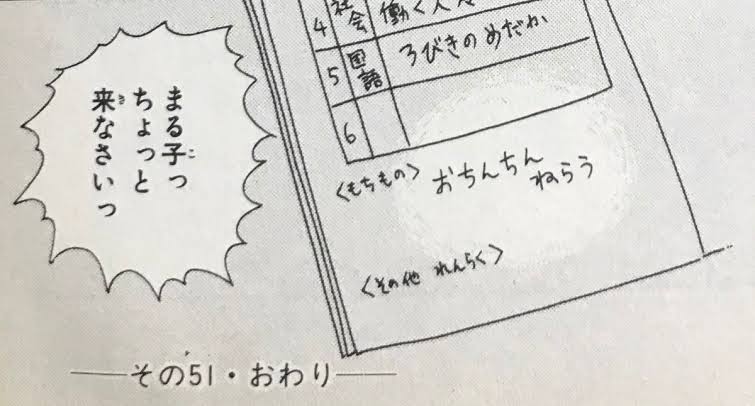 4 社会 働く人々
5 国語 3びきのめだか
6
<もちもの> おちんちん
ねらう
<その他 れんらく>
まる子っ
ちょっと
来なさいっ
——その51・おわり——